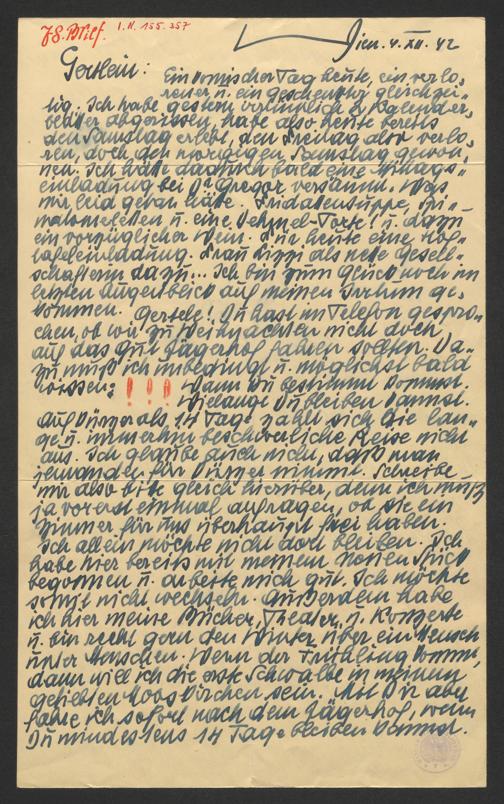 78. Brief.
I.N. 155.357
Wien. 4. XII. 42
Gerslein:
Ein komischer Tag heute, ein verlo-
rener u. ein geschenkter gleichzei-
tig. Ich habe gestern 2 Kalender-
blätter abgerissen, habe also heute bereits
den Samstag erlebt, den Freitag also verlo-
ren, doch den morgigen Samstag gewon-
nen. Ich hätte dadurch bald eine Mittags-
einladung bei Dr Gregor versäumt. Was
mir leid getan hätte. Fridatensuppe,
u. eine Dehmel-Torte! u. dazu
ein vorzüglicher Wein. Für heute eine Hof-
tafeleinladung. Frau Lizzi als nette Gesell-
schafterin dazu... Ich bin zum Glück noch im
letzten Augenblick auf meinen Irrtum ge-
kommen. Gersele! Du hast im Telefon gespro-
chen, ob wir zu Weihnachten nicht doch
auf das Gut Jägerhof fahren sollten. Da-
zu muß ich unbedingt u. möglichst bald
wissen: !!! Wann Du bestimmt kommst.
Wielange Du bleiben kannst.
Auf kürzer als 14 Tage zahlt sich die lan-
ge u. immerhin beschwerliche Reise nicht
aus. Ich glaube auch nicht, daß man
jemanden für kürzer nimmt. Schreibe
mir also bitte gleich hierüber, denn ich muß
ja vorerst einmal anfragen, ob sie ein
Zimmer für uns überhaupt frei haben.
Ich allein möchte nicht dort bleiben. Ich
habe hier bereits mit meinem neuen Stück
begonnen u. arbeite mich gut. Ich möchte
somit nicht wechseln. Außerdem habe
ich hier meine Bücher, Theater u. Konzerte
u. bin recht gern den Winter über ein Mensch
unter Menschen. Wenn der Frühling kommt,
dann will ich die erste Schwalbe in meinem
geliebten Mooskirchen sein. Mit Dir aber
fahre ich sofort nach dem Jägerhof, wenn
Du mindestens 14 Tage bleiben kannst.